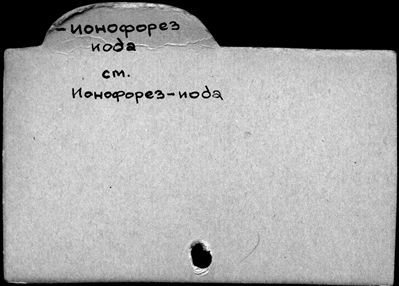 -ионофорез
иода
см.
Ионофорез-иода